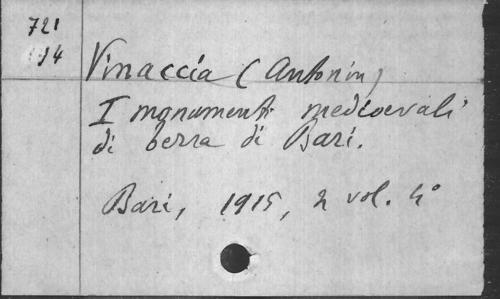 721
14
Vinaccia (Antonin)
I monumenti medioevali
di terra di Bari.
Bari, 1915, 2 vol. 4°